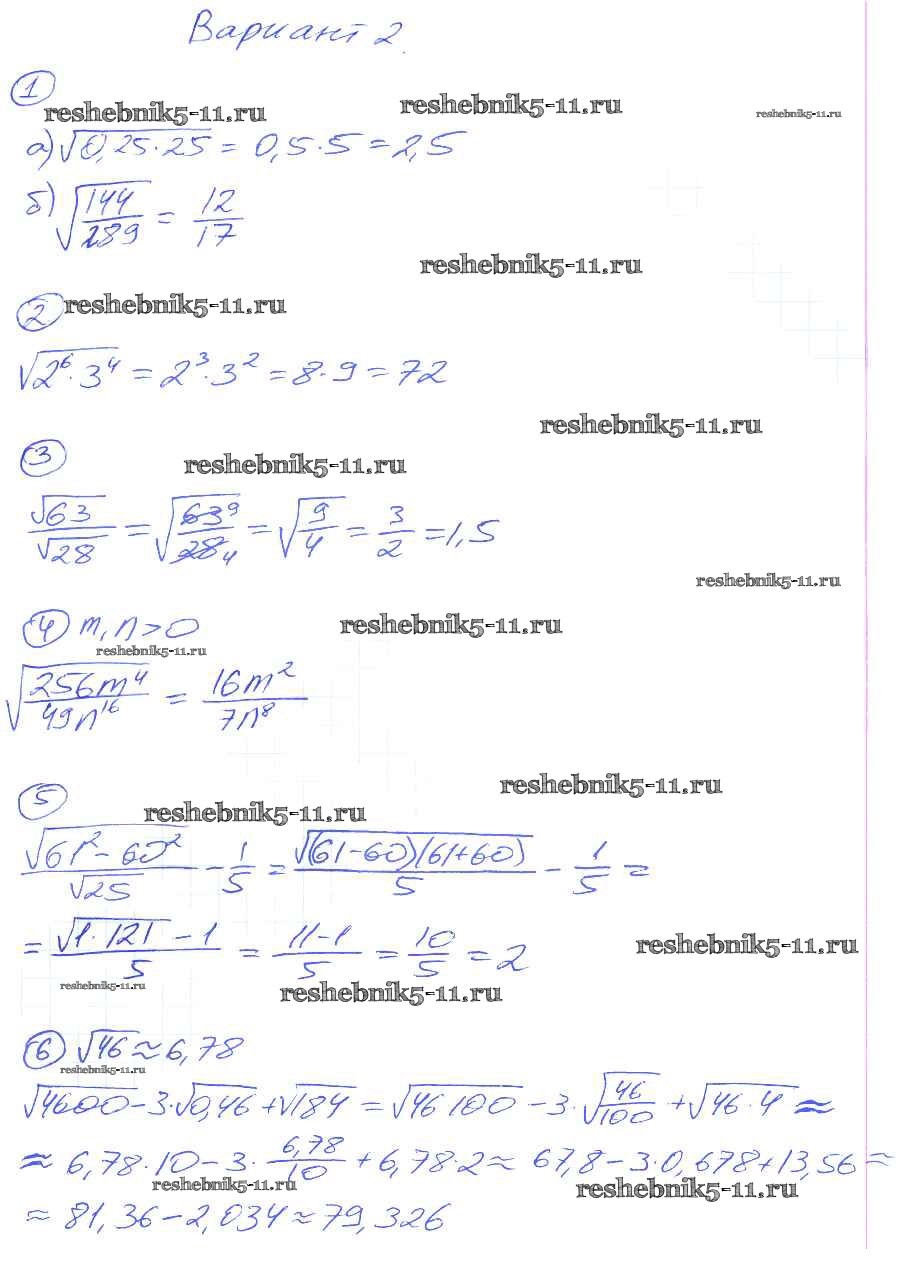 Вариант 2.
①
reshebnik5-11.ru reshebnik5-11.ru reshebnik5-11.ru
а) √(0,25·25) = 0,5·5 = 2,5
б) √(144/289) = 12/17
reshebnik5-11.ru
② reshebnik5-11.ru
√(2⁶·3⁴) = 2³·3² = 8·9 = 72
reshebnik5-11.ru
③
reshebnik5-11.ru
√63/√28 = √(63 9/28 4) = √(9/4) = 3/2 = 1,5
reshebnik5-11.ru
④ m, n > 0 reshebnik5-11.ru
reshebnik5-11.ru
√(256m⁴/49n¹⁶) = 16m²/7n⁸
reshebnik5-11.ru
⑤ reshebnik5-11.ru
√(61² − 60²)/√25 − 1/5 = √((61−60)(61+60))/5 − 1/5 =
= (√(1·121) − 1)/5 = (11−1)/5 = 10/5 = 2 reshebnik5-11.ru
reshebnik5-11.ru reshebnik5-11.ru
⑥ √46 ≈ 6,78
reshebnik5-11.ru
√4600 − 3·√0,46 + √184 = √(46 100) − 3·√(46/100) + √(46·4) ≈
≈ 6,78·10 − 3·6,78/10 + 6,78·2 ≈ 67,8 − 3·0,678 + 13,56 ≈
reshebnik5-11.ru reshebnik5-11.ru
≈ 81,36 − 2,034 ≈ 79,326